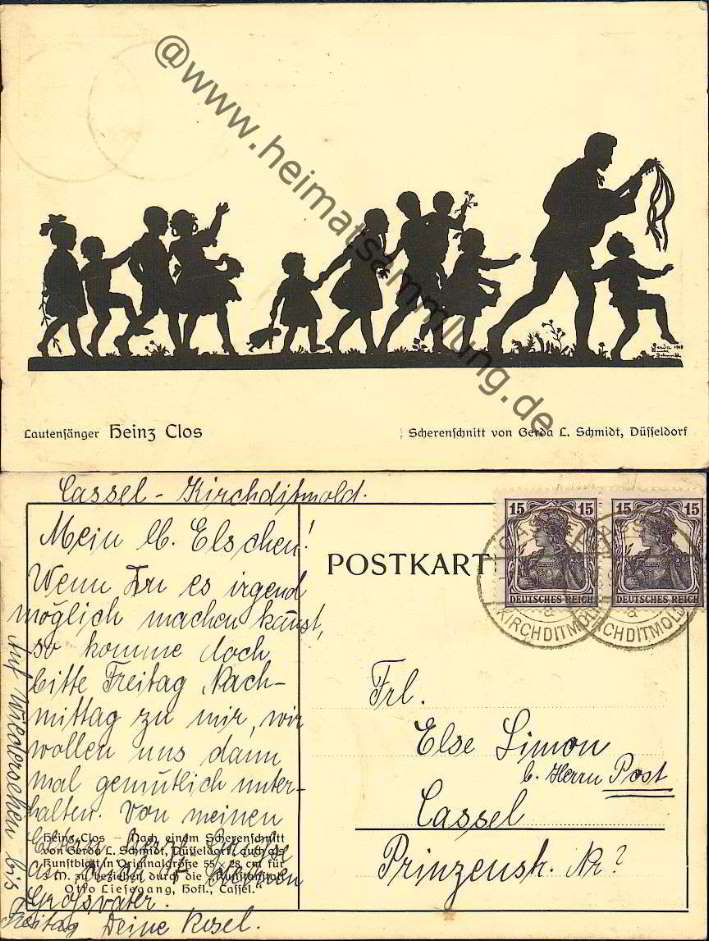 @www.heimatsammlung.de
Lautensänger Heinz Clos
Scherenschnitt von Gerda L. Schmidt, Düsseldorf
Cassel - Kirchditmold.
Mein lb. Elschen!
Wenn Du es irgend
möglich machen kannst,
so komme doch
bitte Freitag Nach-
mittag zu mir, wir
wollen uns dann
mal gemütlich unter-
halten. Von meinen
Eltern Grüsse
Grossvater.
Auf Wiedersehen bis
Freitag Deine Rosel.
Heinz Clos – Nach einem Scherenschnitt
von Gerda L. Schmidt, Düsseldorf, auch als
Kunstblatt in Originalgröße 55 × 28 cm für
M. zu beziehen durch die Kunstanstalt
Otto Liesegang, Hofl., Cassel.
POSTKARTE
15 15
DEUTSCHES REICH
15 15
DEUTSCHES REICH
KIRCHDITMOLD
KIRCHDITMOLD
Frl.
Else Simon
b. Herrn Post
Cassel
Prinzenstr. Nr?